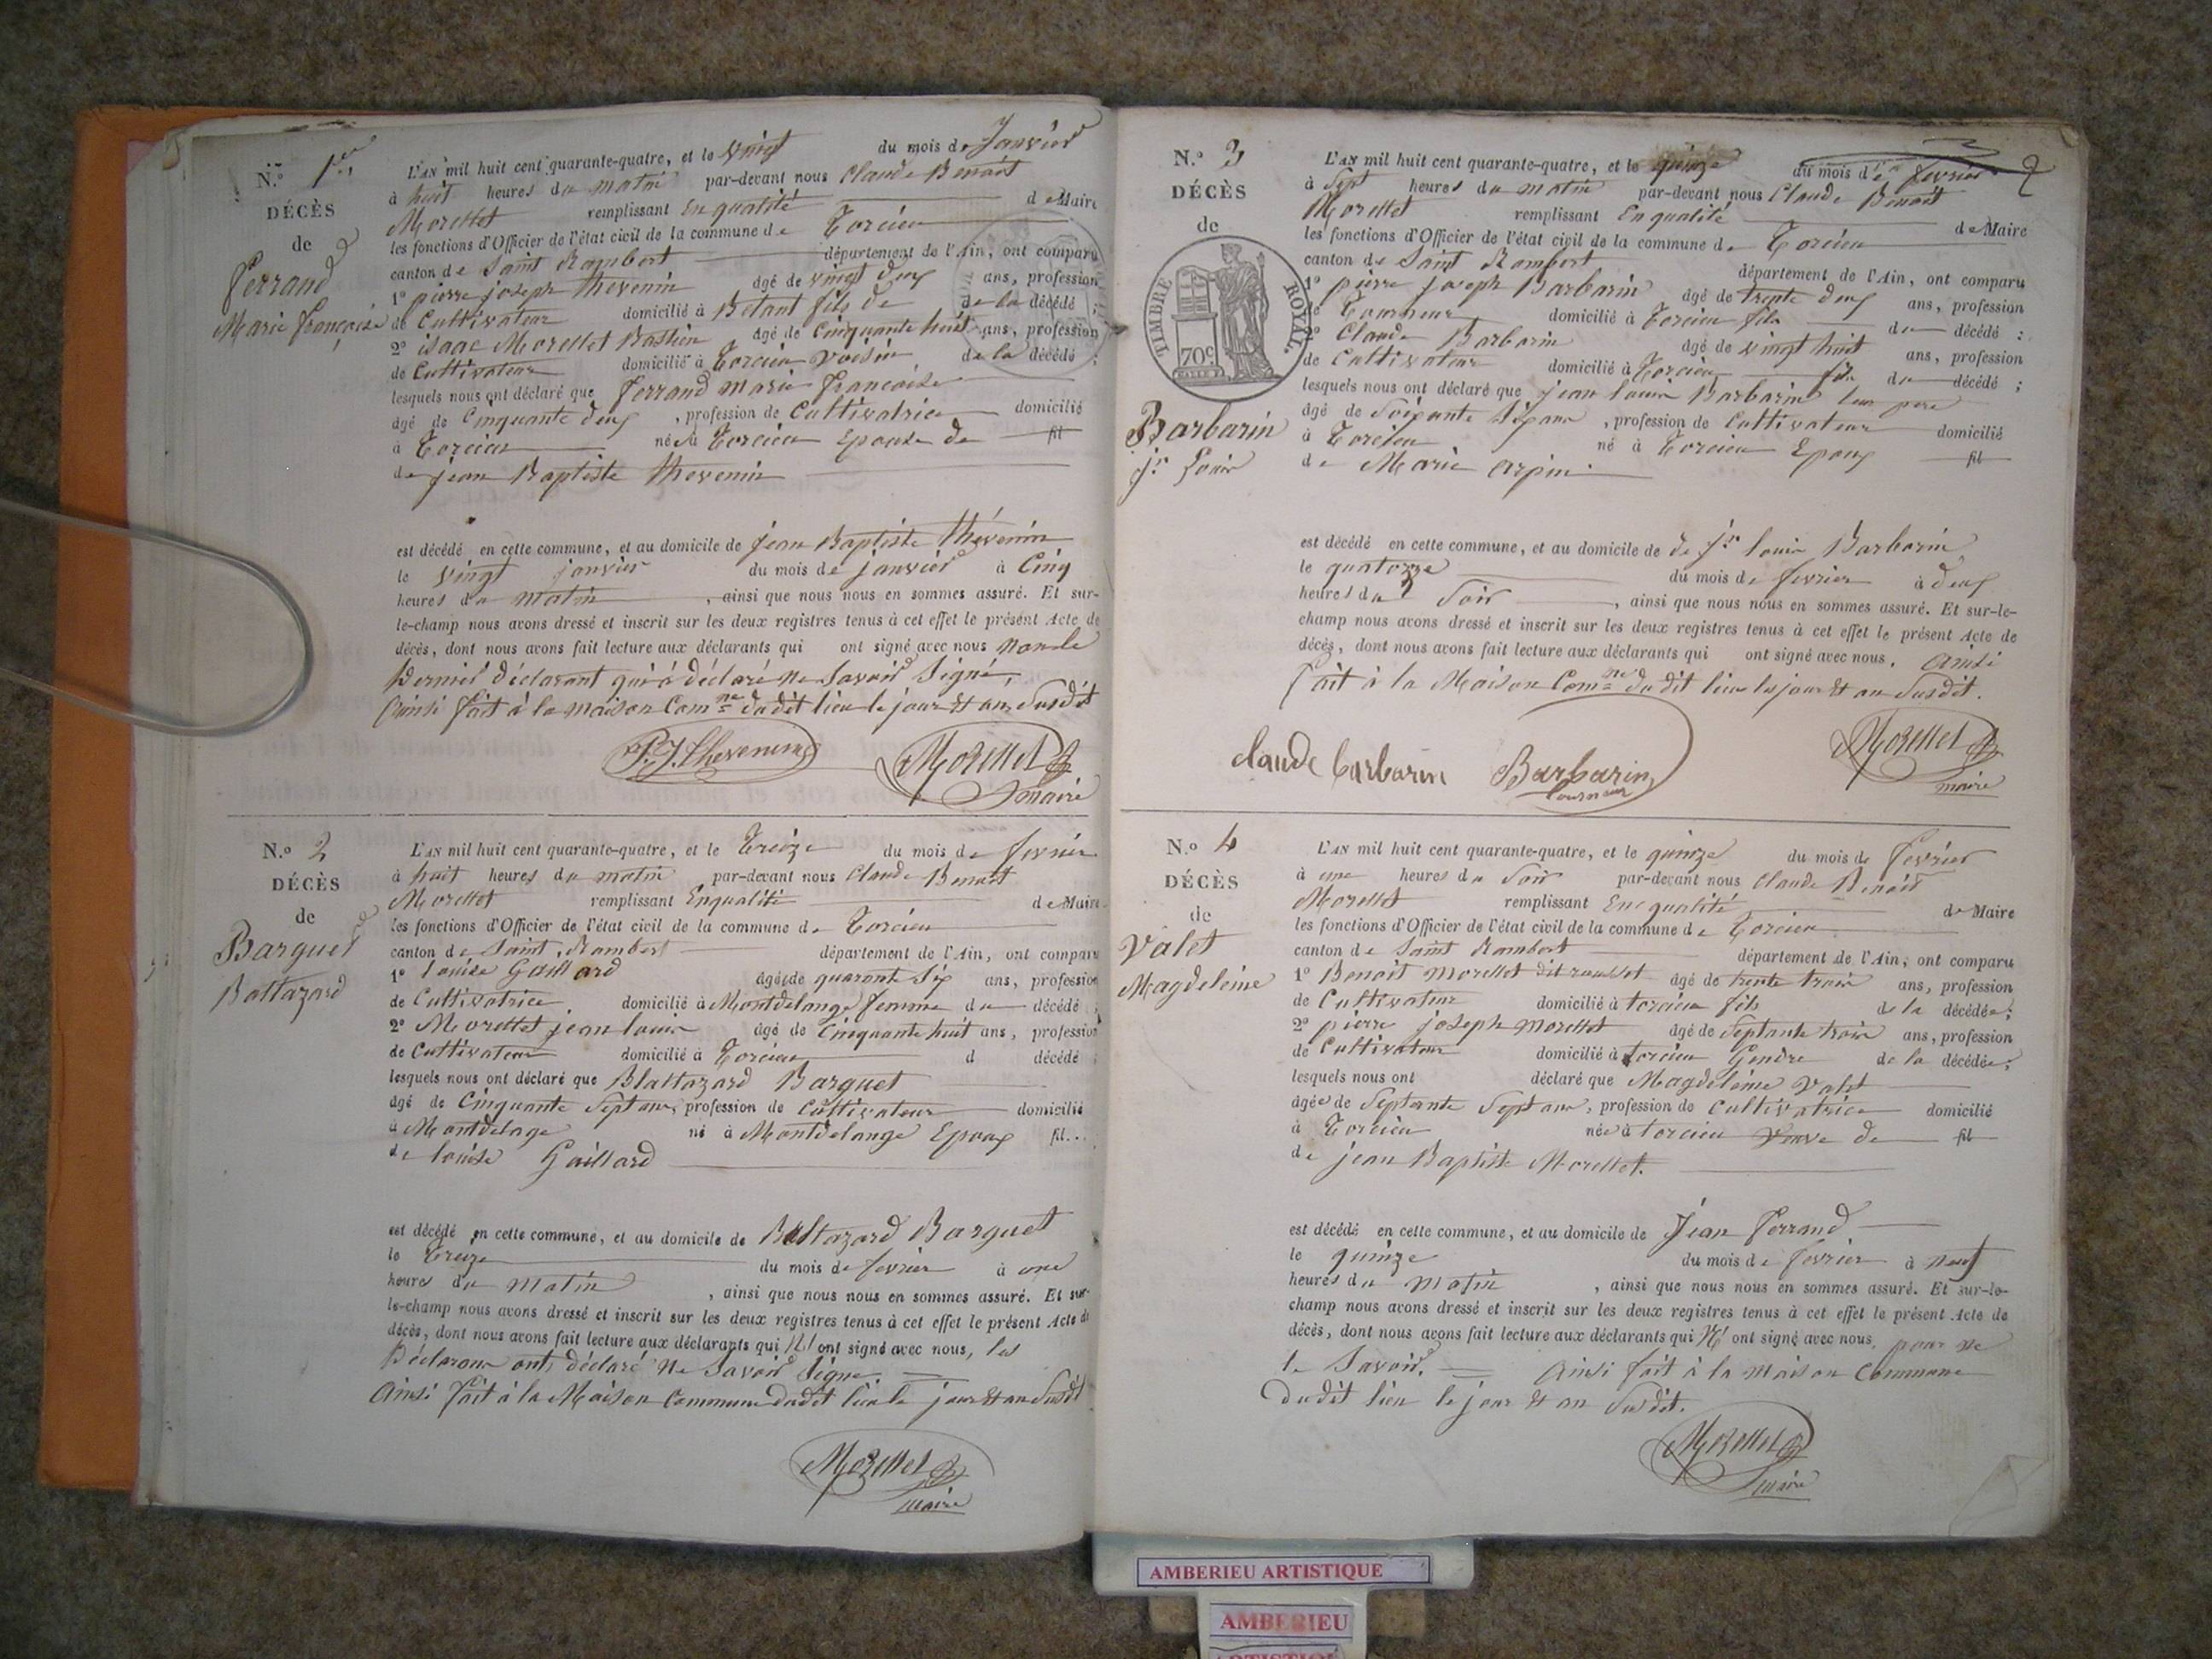 N.º 1er
DÉCÈS
de
Ferrand
Marie françoise
L'AN mil huit cent quarante-quatre, et le vingt du mois de Janvier
à huit heures du matin par-devant nous Claude Benoit
Morellet remplissant En qualité de Maire
les fonctions d'Officier de l'état civil de la commune de Torcieu
canton de Saint Rambert département de l'Ain, ont comparu
1º pierre joseph thevenin âgé de vingt deux ans, profession
de Cultivateur domicilié à Betant fils de de la décédé ;
2º isaac Morellet Bastien âgé de Cinquante huit ans, profession
de Cultivateur domicilié à Torcieu Voisin de la décédé ;
lesquels nous ont déclaré que Ferrand marie francoise
âgé de Cinquante deux , profession de Cultivatrice domicilié
à Torcieu né à Torcieu Epouse de fil
de jean Baptiste thevenin
est décédé en cette commune, et au domicile de jean Baptiste thévenin
le vingt janvier du mois de janvier à Cinq
heures du matin , ainsi que nous nous en sommes assuré. Et sur-
le-champ nous avons dressé et inscrit sur les deux registres tenus à cet effet le présent Acte de
décès, dont nous avons fait lecture aux déclarants qui ont signé avec nous non le
Dernier déclarant qui à déclaré ne Savoir Signé,
Ainsi fait à la maison Comne dudit lieu le jour et an Susdit
P.J. thevenin Morellet
maire
N.º 2
DÉCÈS
de
Barguet
Baltazard
L'AN mil huit cent quarante-quatre, et le Treize du mois de fevrier
à huit heures du matin par-devant nous Claude Benoit
Morellet remplissant Enqualité de Maire
les fonctions d'Officier de l'état civil de la commune de Torcieu
canton de Saint Rambert département de l'Ain, ont comparu
1º louise Gaillard âgé de quarante Six ans, profession
de Cultivatrice domicilié à Montdelange femme du décédé ;
2º Morellet jean louis âgé de Cinquante huit ans, profession
de Cultivateur domicilié à Torcieu d décédé ;
lesquels nous ont déclaré que Blaltazard Barguet
âgé de Cinquante Sept ans, profession de Cultivateur domicilié
à Montdelage né à Montdelange Epoux fil...
de louise Gaillard
est décédé en cette commune, et au domicile de Baltazard Barguet
le Treize du mois de fevrier à une
heures du matin , ainsi que nous nous en sommes assuré. Et sur-
le-champ nous avons dressé et inscrit sur les deux registres tenus à cet effet le présent Acte de
décès, dont nous avons fait lecture aux déclarants qui N' ont signé avec nous, les
Déclarans ont déclaré ne Savoir Signer
Ainsi fait à la Maison Commune dudit lieu le jour et an Susdit
Morellet
maire
2
N.º 3
DÉCÈS
de
TIMBRE ROYAL.
70c
Barbarin
jn Louis
L'AN mil huit cent quarante-quatre, et le quinze du mois de fevrier
à Sept heures du matin par-devant nous Claude Benoit
Morellet remplissant En qualité de Maire
les fonctions d'Officier de l'état civil de la commune de Torcieu
canton de Saint Rambert département de l'Ain, ont comparu
1º pierre joseph Barbarin âgé de trente deux ans, profession
de Tourneur domicilié à Torcieu fils du décédé ;
2º Claude Barbarin âgé de vingt huit ans, profession
de Cultivateur domicilié à Torcieu fils du décédé ;
lesquels nous ont déclaré que jean louis Barbarin leur pere
âgé de Soixante Six ans , profession de Cultivateur domicilié
à Torcieu né à Torcieu Epoux fil
de Marie Arpin
est décédé en cette commune, et au domicile de de jn louis Barbarin
le quatorze du mois de fevrier à deux
heures du Soir , ainsi que nous nous en sommes assuré. Et sur-le-
champ nous avons dressé et inscrit sur les deux registres tenus à cet effet le présent Acte de
décès, dont nous avons fait lecture aux déclarants qui ont signé avec nous. Ainsi
fait à la Maison Comne dudit lieu les jour et an Susdit.
claude barbarin Barbarin Morellet
tourneur maire
N.º 4
DÉCÈS
de
Valet
Magdeleine
L'AN mil huit cent quarante-quatre, et le quinze du mois de fevrier
à une heures du Soir par-devant nous Claude Benoit
Morellet remplissant En qualité de Maire
les fonctions d'Officier de l'état civil de la commune de Torcieu
canton de Saint Rambert département de l'Ain, ont comparu
1º Benoit Morellet dit rousset âgé de trente trois ans, profession
de Cultivateur domicilié à torcieu fils de la décédée ;
2º pierre joseph morellet âgé de Septante trois ans, profession
de Cultivateur domicilié à torcieu Gendre de la décédée ;
lesquels nous ont déclaré que Magdeleine Valet
âgée de Septante Sept ans, profession de Cultivatrice domicilié
à Torcieu née à torcieu Veuve de fil
de jean Baptiste Morellet.
est décédé en cette commune, et au domicile de Jean Ferrand
le quinze du mois de fevrier à neuf
heures du matin , ainsi que nous nous en sommes assuré. Et sur-le-
champ nous avons dressé et inscrit sur les deux registres tenus à cet effet le présent Acte de
décès, dont nous avons fait lecture aux déclarants qui N' ont signé avec nous, pour ne
le Savoir. Ainsi fait à la maison Commune
dudit lieu le jour et an Susdit.
Morellet
maire
AMBERIEU ARTISTIQUE
AMBERIEU
ARTISTIQUE